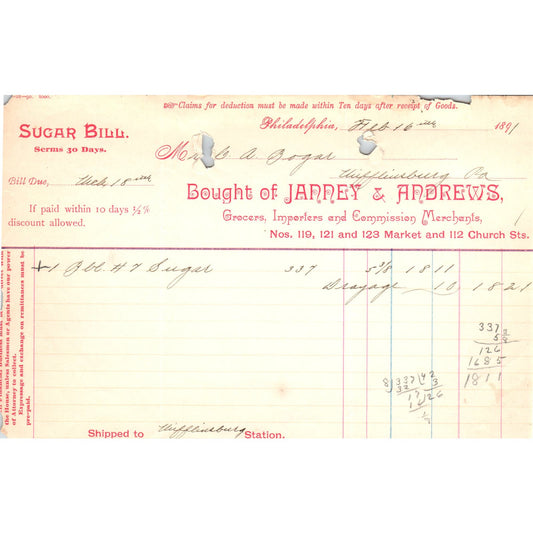 Claims for deduction must be made within Ten days after receipt of Goods.
SUGAR BILL.
Terms 30 Days.
Philadelphia, Feb 16 1891
C A Bogar
Mifflinburg Pa
Bill Due, Mch 18
Bought of JANNEY & ANDREWS,
If paid within 10 days ¼%
discount allowed.
Grocers, Importers and Commission Merchants,
Nos. 119, 121 and 123 Market and 112 Church Sts.
1 Bbl H 7 Sugar 337 5 3/8 18 11
Drayage 10 18 21
337
5 3/8
126
1685
1811
8)337(42
32 3
17 126
16
the House, unless Salesmen or Agents have our power
of Attorney to collect.
Expressage and exchange on remittances must be
pre-paid.
Shipped to Mifflinburg Station.